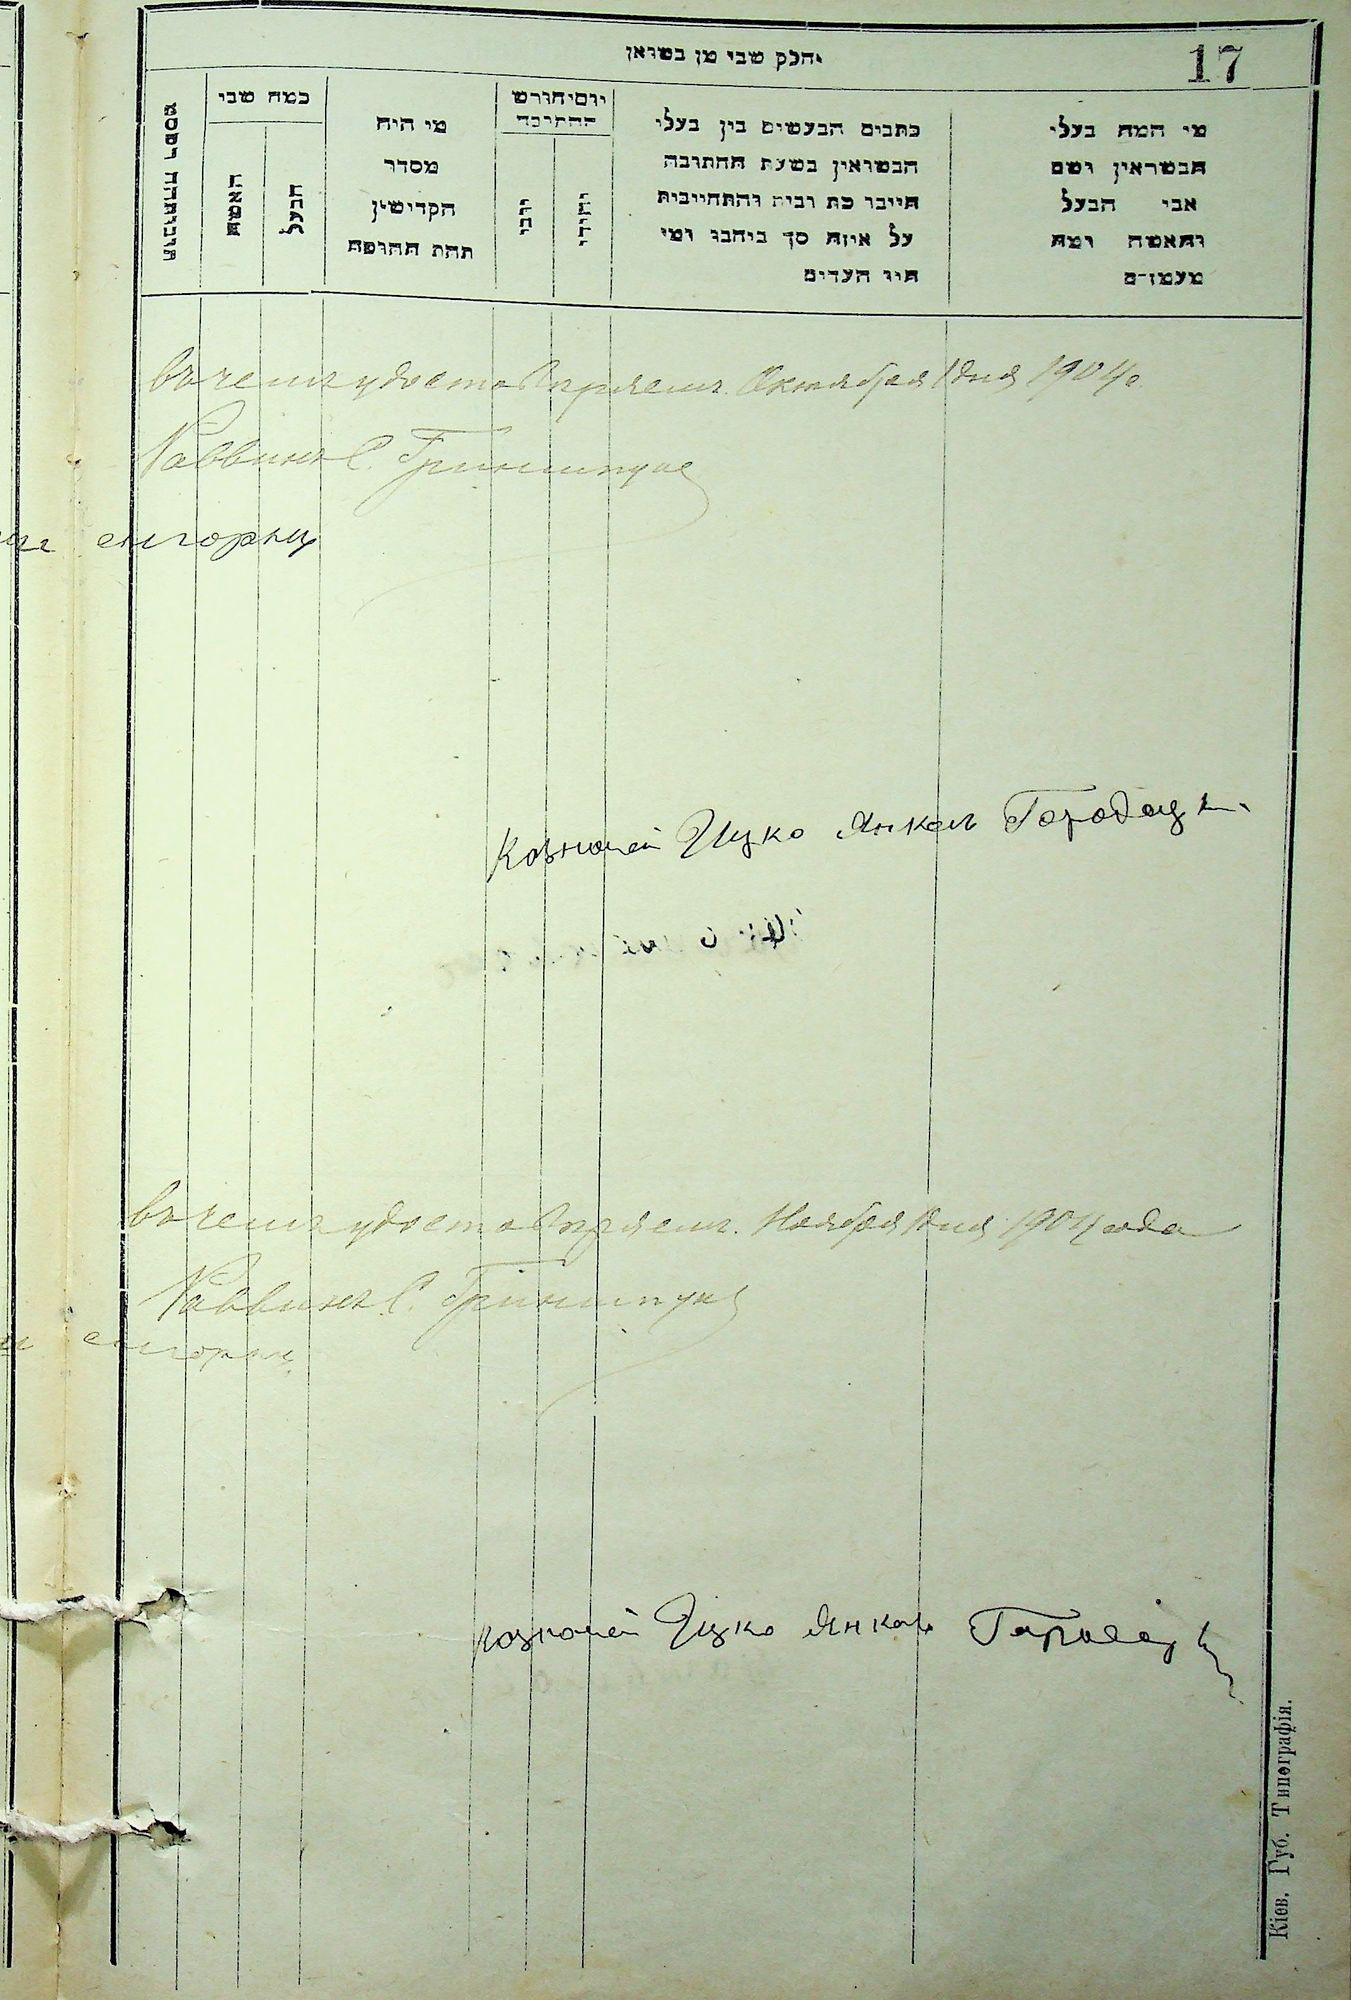 17
חלק שני מן נשואן
מי המה בעלי
הנשואין ושם
אבי הבעל
והאשה ומה
מעמדם
כתבים הנעשים בין בעלי
הנשואין בשעת החתונה
חייבו כת רבית והתחייבות
על איזה סך ביחבו ומי
היו העדים
יום וחודש
החתונה
יהודי
נוצרי
מי היה
מסדר
הקדושין
תחת החופה
כמה שני
הבעל
האשה
מספר החתונות
въ чемъ удостовѣряемъ. Октября 1 дня 1904 г.
Раввинъ С. Гриншпунъ
Казначей Ицко Янкель Городецкі
въ чемъ удостовѣряемъ. Ноября 1 дня 1904 года
Раввинъ С. Гриншпунъ
Казначей Ицко Янкель Городецкі
Кіев. Губ. Типографія.